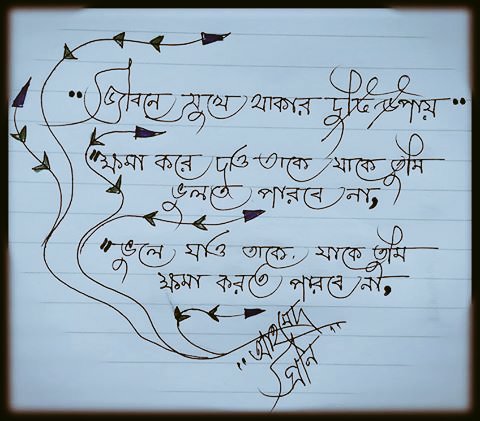 "জীবনে সুখে থাকার দুটি উপায়"
"ক্ষমা করে দাও তাকে যাকে তুমি
ভুলতে পারবে না,
"ভুলে যাও তাকে. যাকে তুমি
ক্ষমা করতে পারবে না,